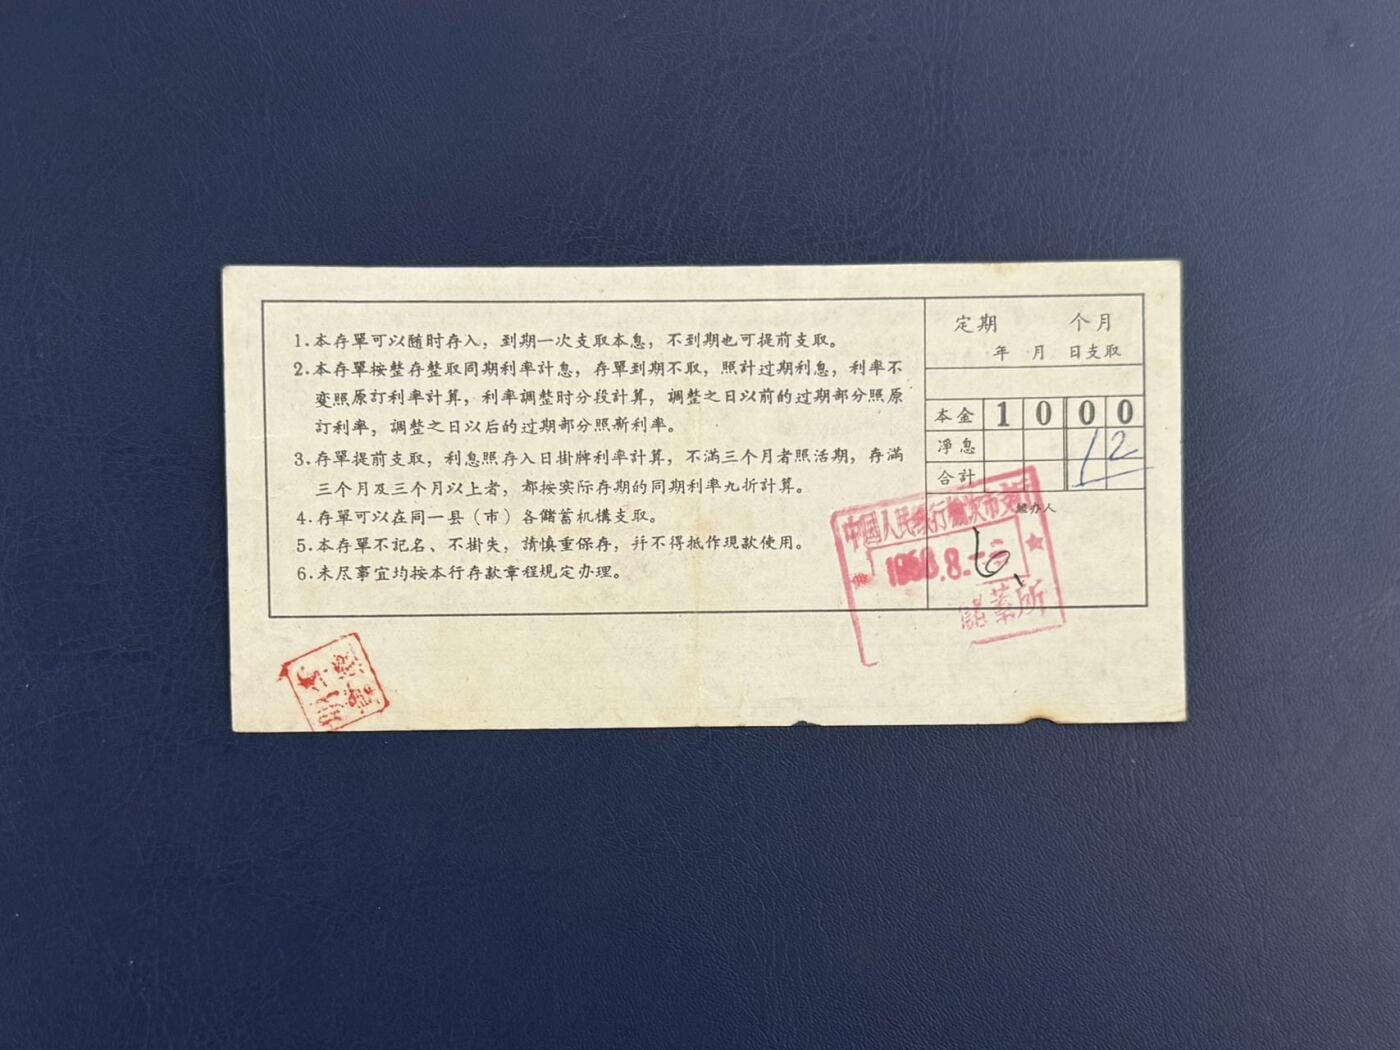 1.本存單可以随时存入，到期一次支取本息，不到期也可提前支取。
2.本存單按整存整取同期利率計息，存單到期不取，照計过期利息，利率不
变照原訂利率計算，利率調整时分段計算，調整之日以前的过期部分照原
訂利率，調整之日以后的过期部分照新利率。
3.存單提前支取，利息照存入日掛牌利率計算，不滿三个月者照活期，存滿
三个月及三个月以上者，都按实际存期的同期利率九折計算。
4.存單可以在同一县（市）各儲蓄机構支取。
5.本存單不记名、不掛失，請慎重保存，并不得抵作現款使用。
6.未尽事宜均按本行存款章程規定办理。
定期 个月
年 月 日支取
本金 1 0 0 0
淨息 12
合計
經办人
中國人民銀行榆次市支行
儲蓄所